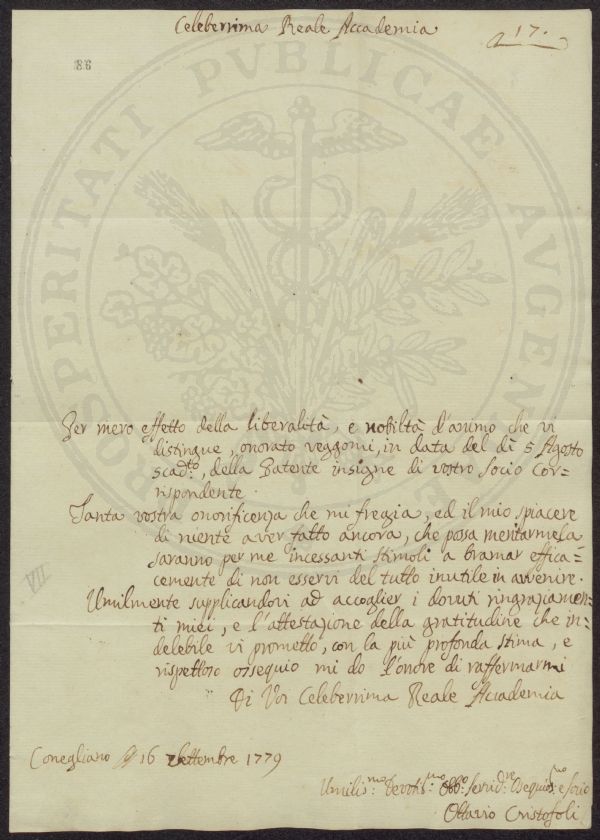 Celeberrima Reale Accademia
17.
86
PROSPERITATI PUBLICAE AUGENDAE
Per mero effetto della liberalità, e nobiltà d'animo che vi
distingue, onorato veggomi, in data del dì 5 Agosto
scad:to, della Patente insigne di vostro socio Cor=
rispondente.
Tanta vostra onorificenza che mi fregia, ed il mio spiacere
di niente aver fatto ancora, che possa meritarmela
saranno per me incessanti stimoli a bramar effica=
cemente di non esservi del tutto inutile in avvenire.
VII
Umilmente supplicandovi ad accoglier i dovuti ringraziamen=
ti miei, e l'attestazione della gratitudine che in=
delebile vi prometto, con la più profonda stima, e
rispettoso ossequio mi do l'onore di raffermarmi
Di Voi Celeberrima Reale Accademia
Conegliano 16 Settembre 1779
Umilis:mo Devotis:mo Obb:o Servid:re Ossequios:mo e socio
Ottavio Cristofoli